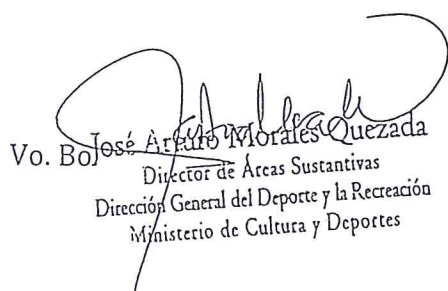 Vo. Bo. José Arturo Morales Quezada
Director de Áreas Sustantivas
Dirección General del Deporte y la Recreación
Ministerio de Cultura y Deportes